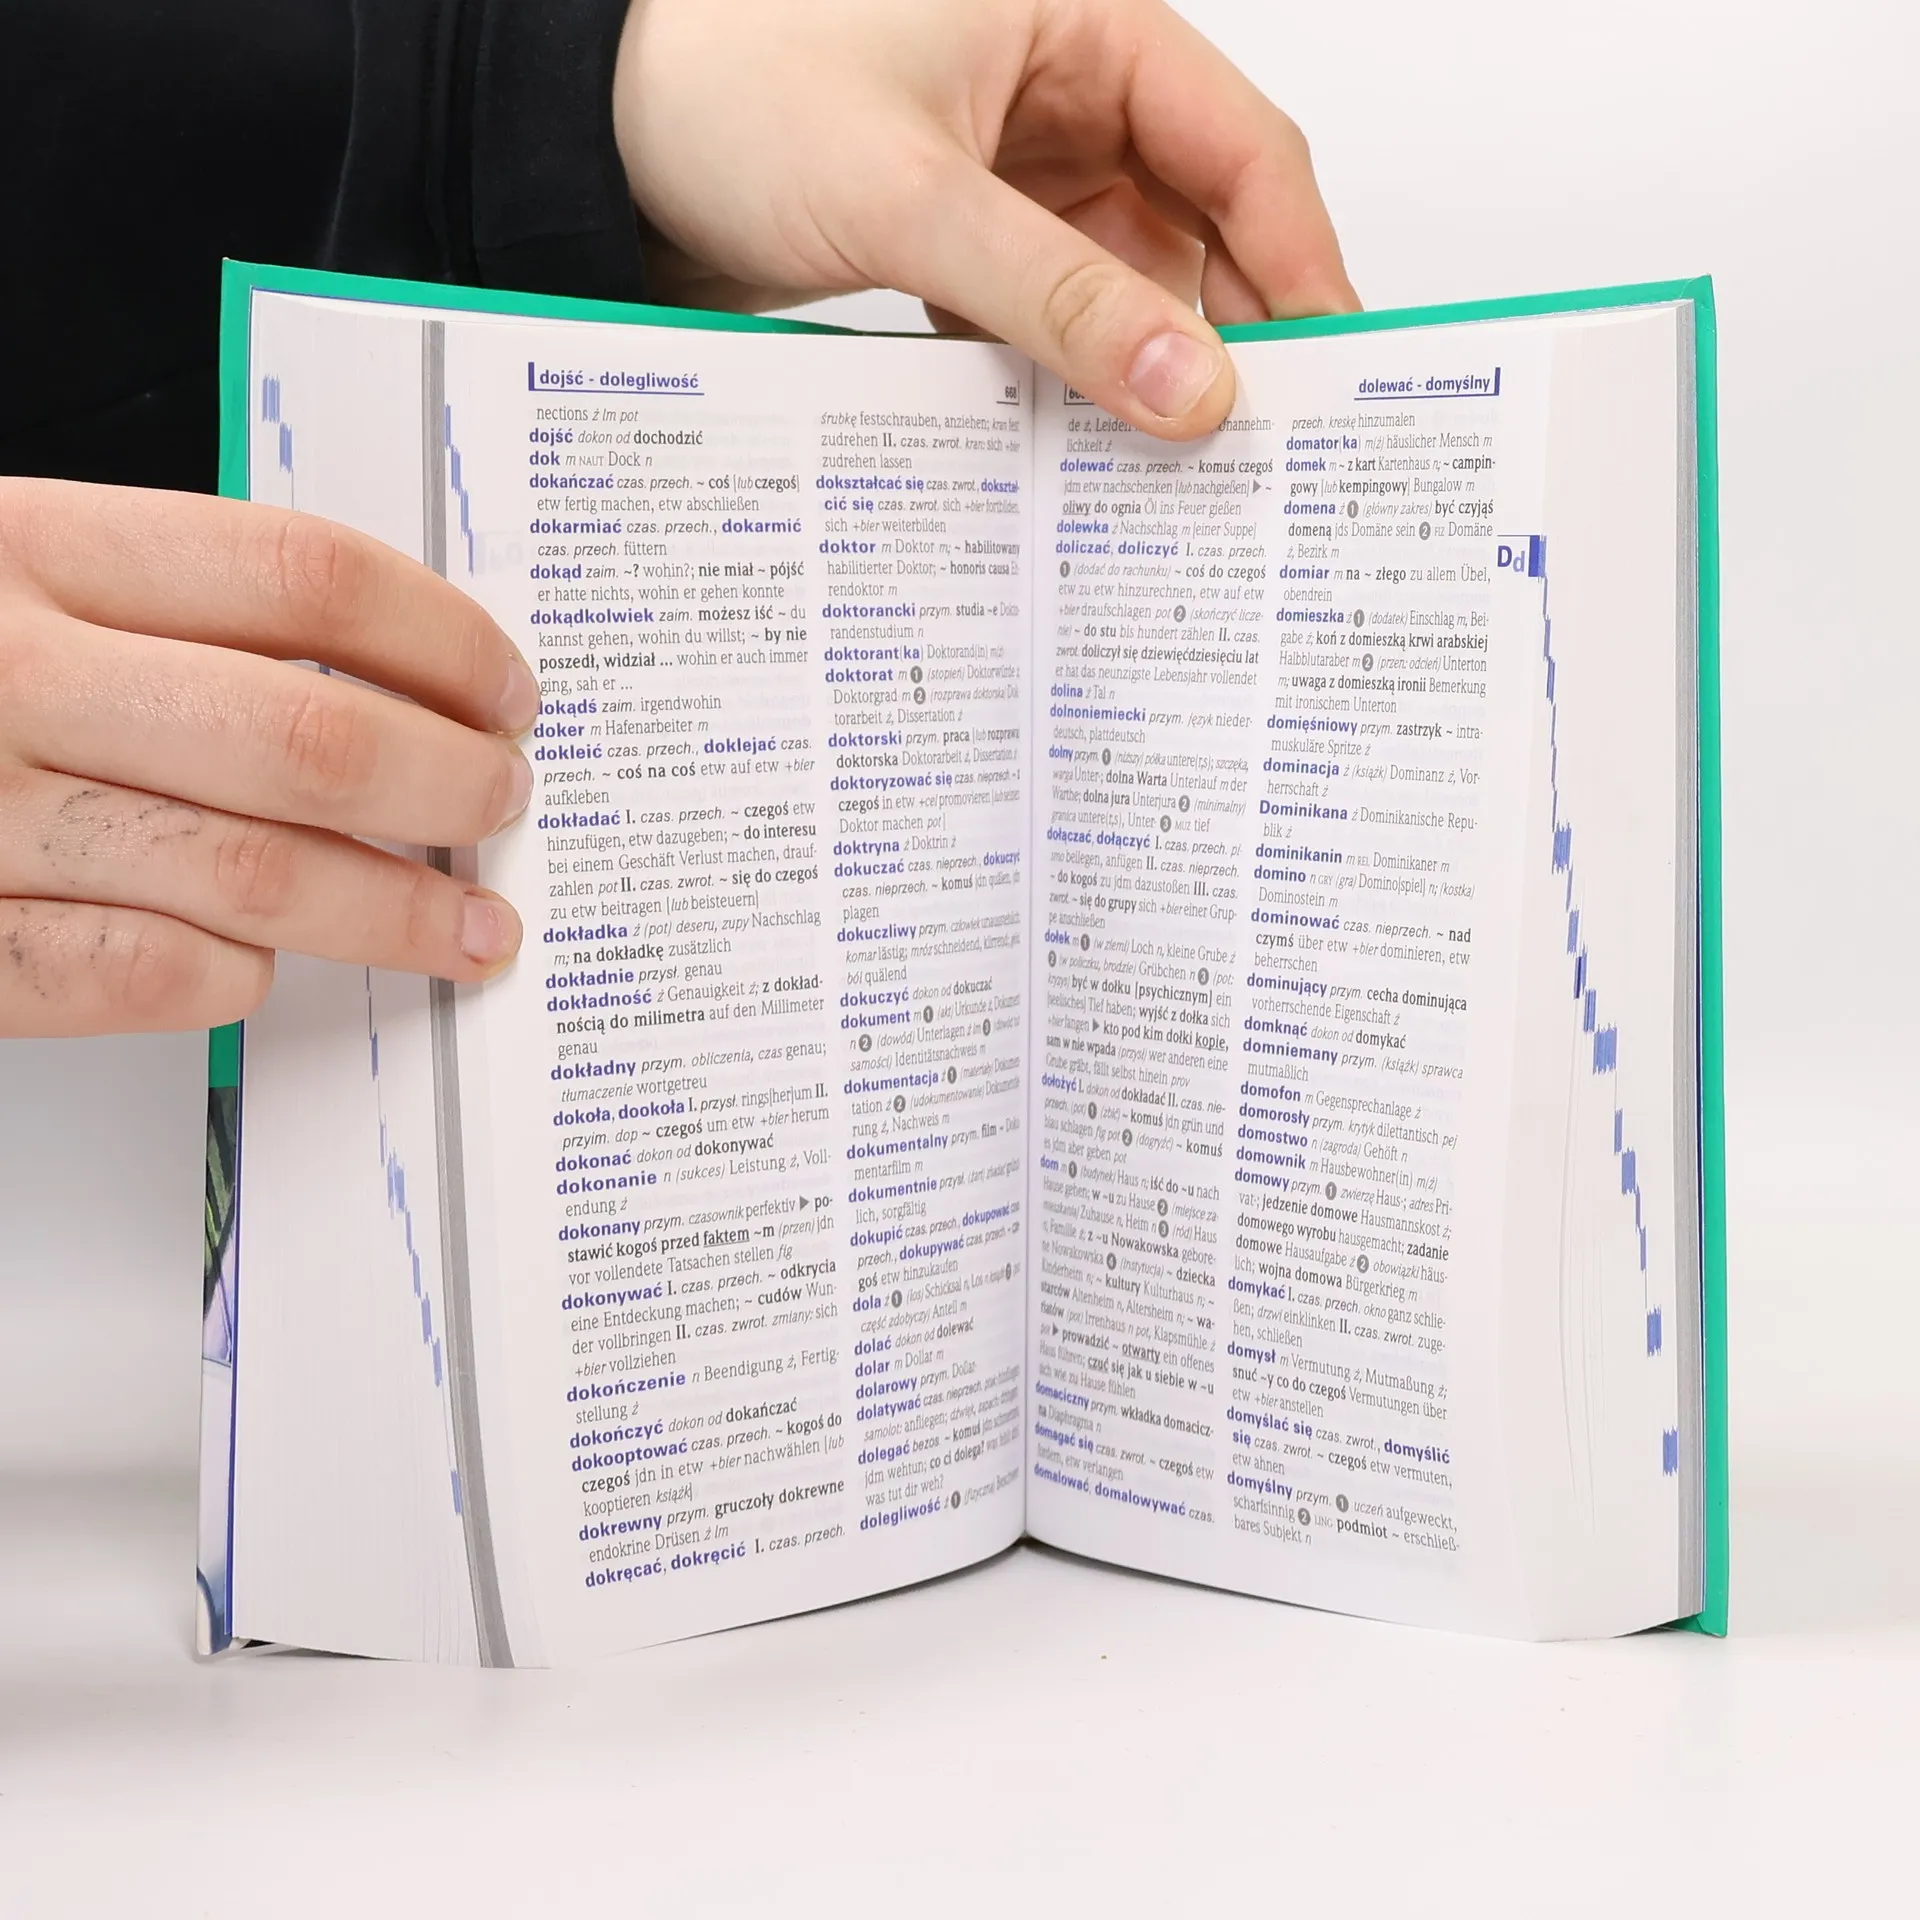 dojść - dolegliwość
668
nections ż lm pot
dojść dokon od dochodzić
dok m NAUT Dock n
dokańczać czas. przech. ~ coś [lub czegoś]
etw fertig machen, etw abschließen
dokarmiać czas. przech., dokarmić
czas. przech. füttern
dokąd zaim. ~? wohin?; nie miał ~ pójść
er hatte nichts, wohin er gehen konnte
dokądkolwiek zaim. możesz iść ~ du
kannst gehen, wohin du willst; ~ by nie
poszedł, widział ... wohin er auch immer
ging, sah er ...
dokądś zaim. irgendwohin
doker m Hafenarbeiter m
dokleić czas. przech., doklejać czas.
przech. ~ coś na coś etw auf etw +bier
aufkleben
dokładać I. czas. przech. ~ czegoś etw
hinzufügen, etw dazugeben; ~ do interesu
bei einem Geschäft Verlust machen, drauf-
zahlen pot II. czas. zwrot. ~ się do czegoś
zu etw beitragen [lub beisteuern]
dokładka ż (pot) deseru, zupy Nachschlag
m; na dokładkę zusätzlich
dokładnie przysł. genau
dokładność ż Genauigkeit ż; z dokład-
nością do milimetra auf den Millimeter
genau
dokładny przym. obliczenia, czas genau;
tłumaczenie wortgetreu
dokoła, dookoła I. przysł. rings[her]um II.
przyim. dop ~ czegoś um etw +bier herum
dokonać dokon od dokonywać
dokonanie n (sukces) Leistung ż, Voll-
endung ż
dokonany przym. czasownik perfektiv ▶ po-
stawić kogoś przed faktem ~m (przen) jdn
vor vollendete Tatsachen stellen fig
dokonywać I. czas. przech. ~ odkrycia
eine Entdeckung machen; ~ cudów Wun-
der vollbringen II. czas. zwrot. zmiany: sich
+bier vollziehen
dokończenie n Beendigung ż, Fertig-
stellung ż
dokończyć dokon od dokańczać
dokooptować czas. przech. ~ kogoś do
czegoś jdn in etw +bier nachwählen [lub
kooptieren książk]
dokrewny przym. gruczoły dokrewne
endokrine Drüsen ż lm
dokręcać, dokręcić I. czas. przech.
śrubkę festschrauben, anziehen; kran fest
zudrehen II. czas. zwrot. kran: sich +bier
zudrehen lassen
dokształcać się czas. zwrot., dokształ-
cić się czas. zwrot. sich +bier fortbilden,
sich +bier weiterbilden
doktor m Doktor m; ~ habilitowany
habilitierter Doktor; ~ honoris causa Eh
rendoktor m
doktorancki przym. studia ~e Dokto-
randenstudium n
doktorant(ka) Doktorand(in) m(ż)
doktorat m ❶ (stopień) Doktorwürde ż
Doktorgrad m ❷ (rozprawa doktorska) Dok
torarbeit ż, Dissertation ż
doktorski przym. praca [lub rozprawa
doktorska Doktorarbeit ż, Dissertation ż
doktoryzować się czas. nieprzech. ~ z
czegoś in etw +cel promovieren [lub seinen
Doktor machen pot]
doktryna ż Doktrin ż
dokuczać czas. nieprzech., dokuczyć
czas. nieprzech. ~ komuś jdn quälen, jdn
plagen
dokuczliwy przym. człowiek unausstehlich
komar lästig; mróz schneidend, klirrend;
ból quälend
dokuczyć dokon od dokuczać
dokument m ❶ (akt) Urkunde ż, Dokument
n ❷ (dowód) Unterlagen ż lm ❸ (dowód toż
samości) Identitätsnachweis m
dokumentacja ż ❶ (materiały) Dokumen
tation ż ❷ (udokumentowanie) Dokumentie
rung ż, Nachweis m
dokumentalny przym. film ~ Doku
mentarfilm m
dokumentnie przysł. (żart) zbadać gründ
lich, sorgfältig
dokupić czas. przech., dokupować czas
przech., dokupywać czas. przech. ~ cze
goś etw hinzukaufen
dola ż ❶ (los) Schicksal n, Los n książk ❷ pot
część zdobyczy) Anteil m
dolać dokon od dolewać
dolar m Dollar m
dolarowy przym. Dollar-
dolatywać czas. nieprzech. ptak: hinfliegen
samolot: anfliegen; dźwięk, zapach: dringen
dolegać bezos. ~ komuś jdn schmerzen,
jdm wehtun; co ci dolega? was fehlt dir,
was tut dir weh?
dolegliwość ż ❶ (fizyczna) Beschwer
dolewać - domyślny
de ż, Leiden Unannehm-
lichkeit ż
dolewać czas. przech. ~ komuś czegoś
jdm etw nachschenken [lub nachgießen] ▶ ~
oliwy do ognia Öl ins Feuer gießen
dolewka ż Nachschlag m [einer Suppe]
doliczać, doliczyć I. czas. przech.
❶ (dodać do rachunku) ~ coś do czegoś
etw zu etw hinzurechnen, etw auf etw
+bier draufschlagen pot ❷ (skończyć licze-
nie) ~ do stu bis hundert zählen II. czas.
zwrot. doliczył się dziewięćdziesięciu lat
er hat das neunzigste Lebensjahr vollendet
dolina ż Tal n
dolnoniemiecki przym. język nieder-
deutsch, plattdeutsch
dolny przym. ❶ (niższy) półka untere(r,s); szczęka,
warga Unter-; dolna Warta Unterlauf m der
Warthe; dolna jura Unterjura ❷ (minimalny)
granica untere(r,s), Unter- ❸ MUZ tief
dołączać, dołączyć I. czas. przech. pi-
smo beilegen, anfügen II. czas. nieprzech.
~ do kogoś zu jdm dazustoßen III. czas.
zwrot. ~ się do grupy sich +bier einer Grup-
pe anschließen
dołek m ❶ (w ziemi) Loch n, kleine Grube ż
❷ (w policzku, brodzie) Grübchen n ❸ (pot:
kryzys) być w dołku [psychicznym] ein
[seelisches] Tief haben; wyjść z dołka sich
+bier fangen ▶ kto pod kim dołki kopie,
sam w nie wpada (przysł) wer anderen eine
Grube gräbt, fällt selbst hinein prov
dołożyć I. dokon od dokładać II. czas. nie-
przech. (pot) ❶ (zbić) ~ komuś jdn grün und
blau schlagen fig pot ❷ (dogryźć) ~ komuś
es jdm aber geben pot
dom m ❶ (budynek) Haus n; iść do ~u nach
Hause gehen; w ~u zu Hause ❷ (miejsce za-
mieszkania) Zuhause n, Heim n ❸ (ród) Haus
n, Familie ż; z ~u Nowakowska gebore-
ne Nowakowska ❹ (instytucja) ~ dziecka
Kinderheim n; ~ kultury Kulturhaus n; ~
starców Altenheim n, Altersheim n; ~ wa-
riatów (pot) Irrenhaus n pot, Klapsmühle ż
pot ▶ prowadzić ~ otwarty ein offenes
Haus führen; czuć się jak u siebie w ~u
sich wie zu Hause fühlen
domaciczny przym. wkładka domacicz-
na Diaphragma n
domagać się czas. zwrot. ~ czegoś etw
fordern, etw verlangen
domalować, domalowywać czas.
przech. kreskę hinzumalen
domator(ka) m(ż) häuslicher Mensch m
domek m ~ z kart Kartenhaus n; ~ campin-
gowy [lub kempingowy] Bungalow m
domena ż ❶ (główny zakres) być czyjąś
domeną jds Domäne sein ❷ FIZ Domäne
ż, Bezirk m
domiar m na ~ złego zu allem Übel,
obendrein
domieszka ż ❶ (dodatek) Einschlag m, Bei-
gabe ż; koń z domieszką krwi arabskiej
Halbblutaraber m ❷ (przen: odcień) Unterton
m; uwaga z domieszką ironii Bemerkung
mit ironischem Unterton
domięśniowy przym. zastrzyk ~ intra-
muskuläre Spritze ż
dominacja ż (książk) Dominanz ż, Vor-
herrschaft ż
Dominikana ż Dominikanische Repu-
blik ż
dominikanin m REL Dominikaner m
domino n GRY (gra) Domino[spiel] n; (kostka)
Dominostein m
dominować czas. nieprzech. ~ nad
czymś über etw +bier dominieren, etw
beherrschen
dominujący przym. cecha dominująca
vorherrschende Eigenschaft ż
domknąć dokon od domykać
domniemany przym. (książk) sprawca
mutmaßlich
domofon m Gegensprechanlage ż
domorosły przym. krytyk dilettantisch pej
domostwo n (zagroda) Gehöft n
domownik m Hausbewohner(in) m(ż)
domowy przym. ❶ zwierzę Haus-; adres Pri-
vat-; jedzenie domowe Hausmannskost ż;
domowego wyrobu hausgemacht; zadanie
domowe Hausaufgabe ż ❷ obowiązki häus-
lich; wojna domowa Bürgerkrieg m
domykać I. czas. przech. okno ganz schlie-
ßen; drzwi einklinken II. czas. zwrot. zuge-
hen, schließen
domysł m Vermutung ż, Mutmaßung ż;
snuć ~y co do czegoś Vermutungen über
etw +bier anstellen
domyślać się czas. zwrot., domyślić
się czas. zwrot. ~ czegoś etw vermuten,
etw ahnen
domyślny przym. ❶ uczeń aufgeweckt,
scharfsinnig ❷ LING podmiot ~ erschließ-
bares Subjekt n
Dd